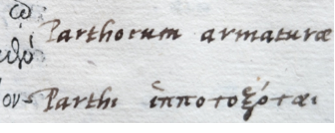 ῶ
Parthorum armaturæ
Parthi ἱπποτοξόται